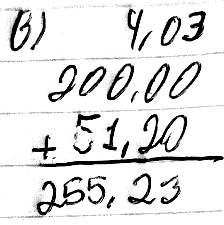 б) 4,03
200,00
+ 51,20
255,23